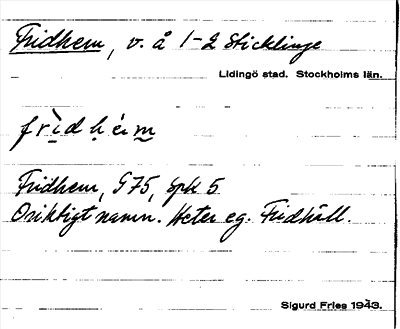 Fridhem, v. å 1-2 Sticklinge
Lidingö stad. Stockholms län.
frìdhém
Fridhem, G75, spk 5
Oriktigt namn. Heter eg. Fridhäll.
Sigurd Fries 1943.